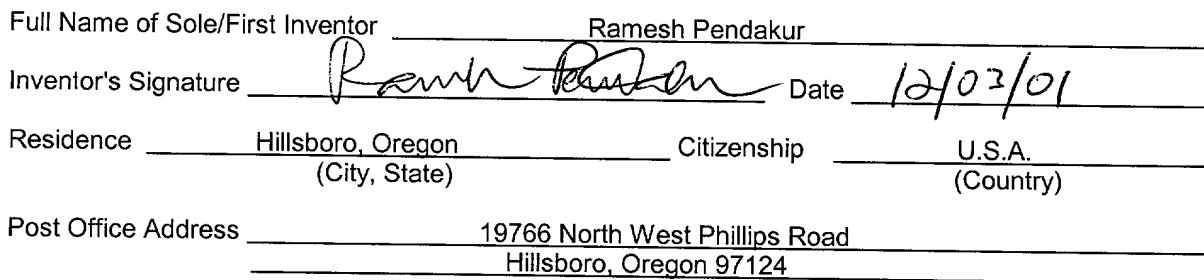 Full Name of Sole/First Inventor Ramesh Pendakur
Inventor's Signature Ramesh Pendakur Date 12/03/01
Residence Hillsboro, Oregon Citizenship U.S.A.
(City, State) (Country)
Post Office Address 19766 North West Phillips Road
Hillsboro, Oregon 97124